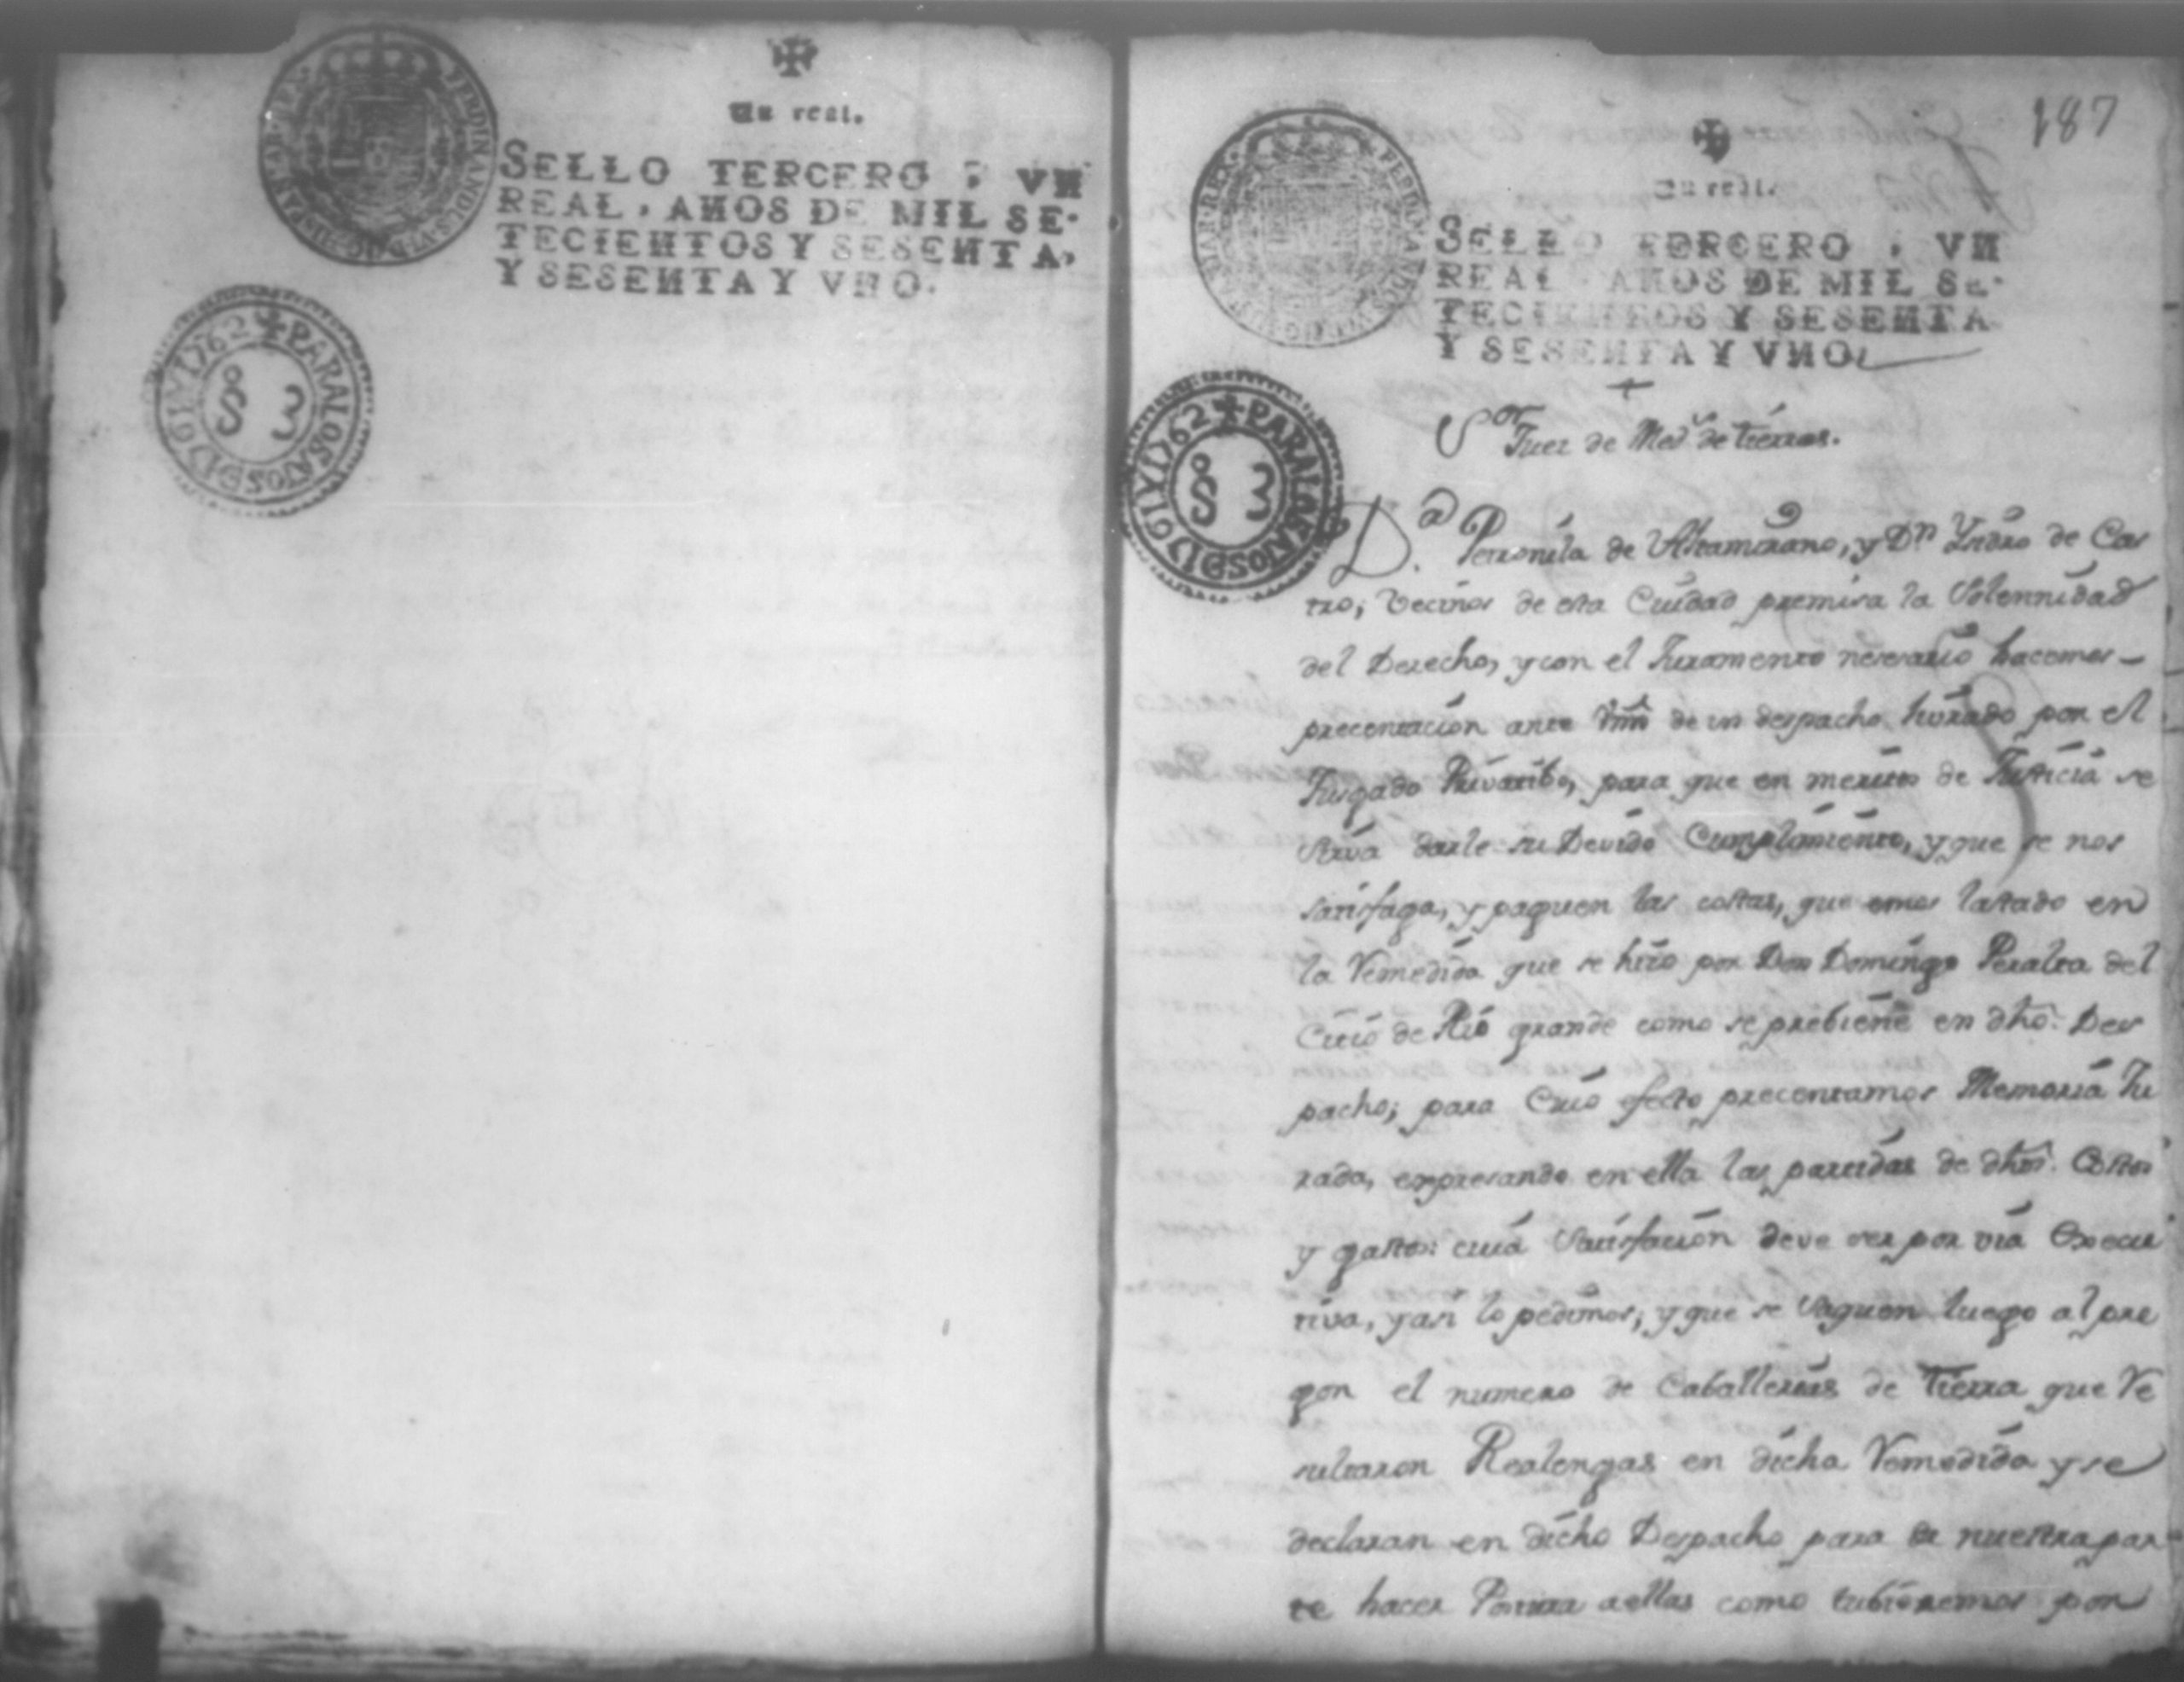 Un real.
SELLO TERCERO, VN
REAL, AÑOS DE MIL SE-
TECIENTOS Y SESENTA,
Y SESENTA Y VNO.
FERDINANDUS VI D G HISPANIAR REX
PARA LOS AÑOS D 1761 Y 1762
S 3
187
Un real.
SELLO TERCERO, VN
REAL, AÑOS DE MIL SE-
TECIENTOS Y SESENTA
Y SESENTA Y VNO
FERDINANDUS VI D G HISPANIAR REX
PARA LOS AÑOS D 1761 Y 1762
S 3
Sor Juez de Meds de tierras.
Da. Petronila de Altamirano, y Dn Ysidro de Cas
tro, Vecinos de esta Ciudad premisa la Solennidad
del Derecho, y con el Juramento nesesario hacemos
precentacion ante Vmd de un despacho librado por el
Jusgado Privatibo, para que en meritos de Justicia se
sirva darle su Devido Cumplimiento, y que se nos
satisfaga, y paguen las costas, que emos lastado en
la Remedida que se hizo por Don Domingo Peralta del
Citio de Rio grande como se prebiene en dho. Des
pacho; para Cuio efecto precentamos Memoria Ju
rada, expresando en ella las partidas de dhos. Costos
y gastos: cuia Satisfacion deve ser por via Execu
tiva, y asi lo pedimos; y que se saquen luego al pre
gon el numero de Caballerias de tierra que Re
sultaron Realengas en dicha Remedida y se
declaran en dicho Despacho para de nuestra par
te hacer Postura a ellas como tubieremos por